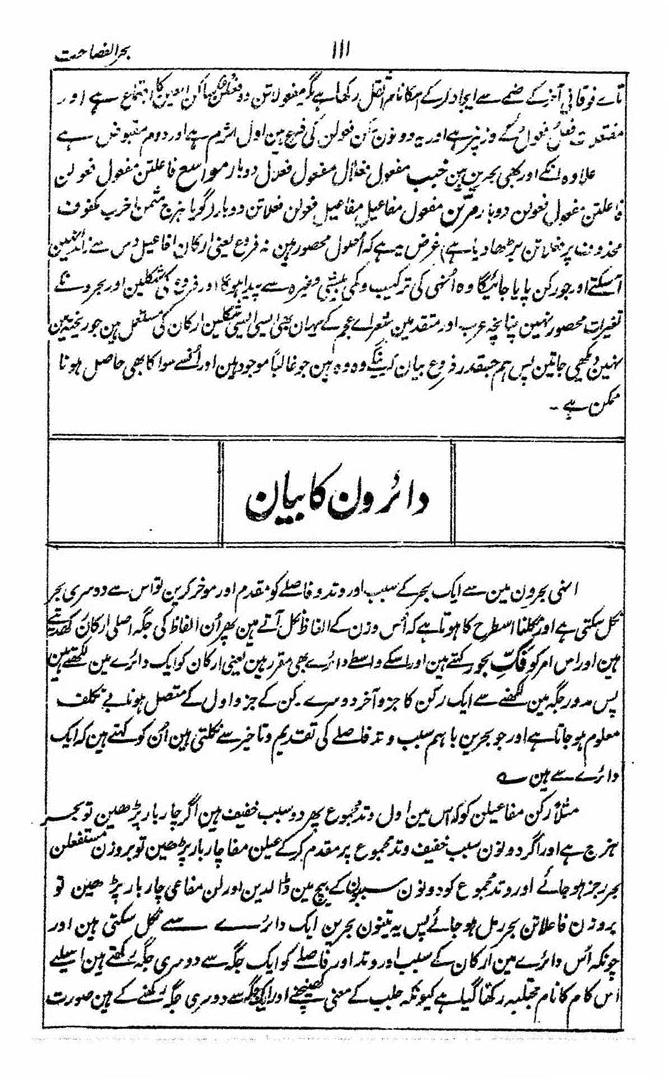 بحر الفصاحت
۱۱۱
تاے فوقانی آخر کے ضمے سے ایجاد کرکے اسکا نام نقل رکھا ہے مفعولاتن دو فعلن کا اجتماع ہے اور
مفتعلت فعلن فعول کے وزنپر ہے اور یہ دونون فعولن کی فرع ہین اول اثرم ہے اور دوم مقبوض ہے
علاوہ انکے اور بھی بحرین ہین خبب مفعول فعلال مفعول فعلال دوبار مواسع فاعلتن مفعول فعولن
فاعلتن مفعول فعولن دوبار مفعول مفاعیل مفاعیل فعولن فعلاتن دوبار گویا ہزج مثمن اخرب مکفوف
محذوف پر فعلاتن بڑھا دیا ہے غرض یہ ہے کہ اصول محصور ہین نہ فروع یعنی ارکان افاعیل دس سے زائد نہین
آسکتے اور جو رکن پایا جائیگا وہ انہی کی ترکیب و کمی بیشی وغیرہ سے پیدا ہوگا اور فروع کی شکلین اور بحرونکے
تغیرات محصور نہین چنانچہ عرب اور متقدمین شعراے عجم کے یہان بعض ایسی ایسی شکلین ارکان کی مستعمل ہین جو ریختہ مین
نہین دکھی جاتین پس ہم جسقدر فروع بیان کرینگے وہ وہ ہین جو غالباً موجود ہین اور انکے سوا کا بھی حاصل ہونا
ممکن ہے ۔
دائرون کا بیان
انہی بحرون مین سے ایک بحر کے سبب اور وتد و فاصلے کو مقدم اور موخر کرین تو اس سے دوسری بحر
نکل سکتی ہے اور نکلنا اسطرح کا ہوتا ہے کہ اُس وزن کے الفاظ نکل آتے ہین پھر اُن الفاظ کی جگہ اصلی ارکان رکھدیتے
ہین اور اس امر کو فکّ بحور کہتے ہین اور اسکے واسطے دائرے بھی مقرر ہین یعنی ارکان کو ایک دائرے مین لکھتے ہین
پس مدور جگہ مین لکھنے سے ایک رکن کا جزو آخر دوسرے رکن کے جزو اول کے متصل ہونا بے تکلف
معلوم ہو جاتا ہے اور جو بحرین باہم سبب و وتد فاصلے کی تقدیم و تاخیر سے نکلتی ہین اُن کو کہتے ہین کہ ایک
دائرے سے ہین
مثلاً رکن مفاعیلن کو کہ اس مین اول وتد مجموع پھر دو سبب خفیف ہین اگر چار بار پڑھین تو بحر
ہزج ہے اور اگر دونون سبب خفیف وتد مجموع پر مقدم کرکے عیلن مفا چار بار پڑھین تو بروزن مستفعلن
بحر رجز ہو جائے اور وتد مجموع کو دونون سببونکے بیچ مین ڈالدین اور لن مفاعی چار بار پڑھین تو
بروزن فاعلاتن بحر رمل ہو جائے پس یہ تینون بحرین ایک دائرے سے نکل سکتی ہین اور
چونکہ اُس دائرے مین ارکان کے سبب اور وتد اور فاصلے کو ایک جگہ سے دوسری جگہ رکھتے ہین اسلیے
اس کام کا نام مجتلبہ رکھا گیا ہے کیونکہ جلب کے معنی کھینچنے اور ایک جگہ سے دوسری جگہ رکھنے کے ہین صورت